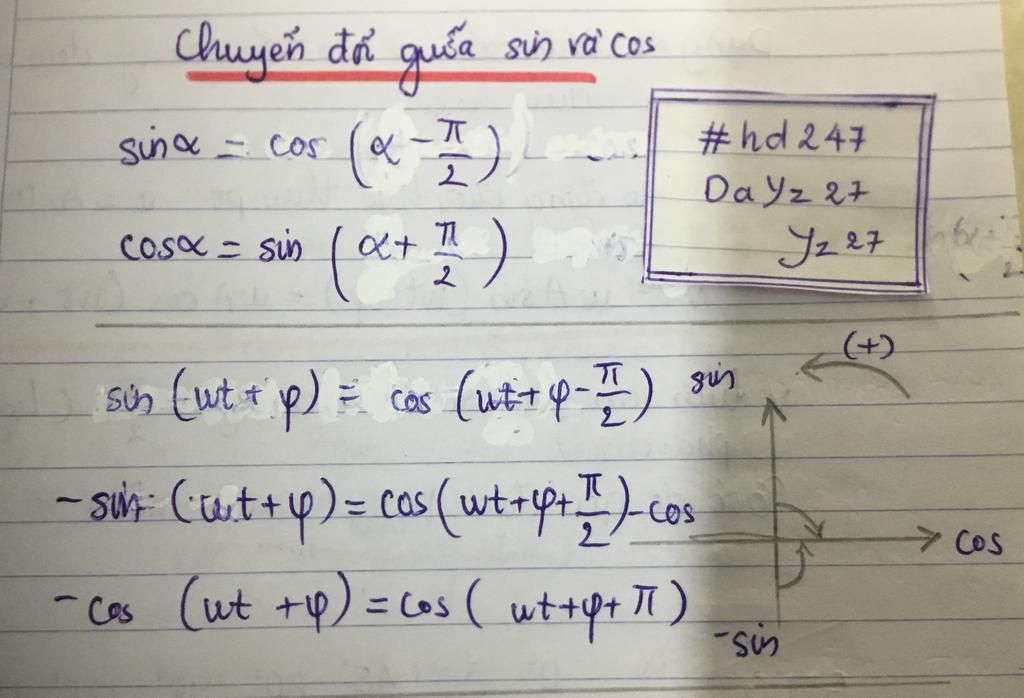 Chuyển đổi giữa sin và cos
sinα = cos (α - π/2)
cosα = sin (α + π/2)
#hd247
DaYz27
Yz27
sin (ωt + φ) = cos (ωt + φ - π/2)
-sin (ωt + φ) = cos (ωt + φ + π/2)
-cos (ωt + φ) = cos ( ωt + φ + π )
(+)
sin
-cos
cos
-sin